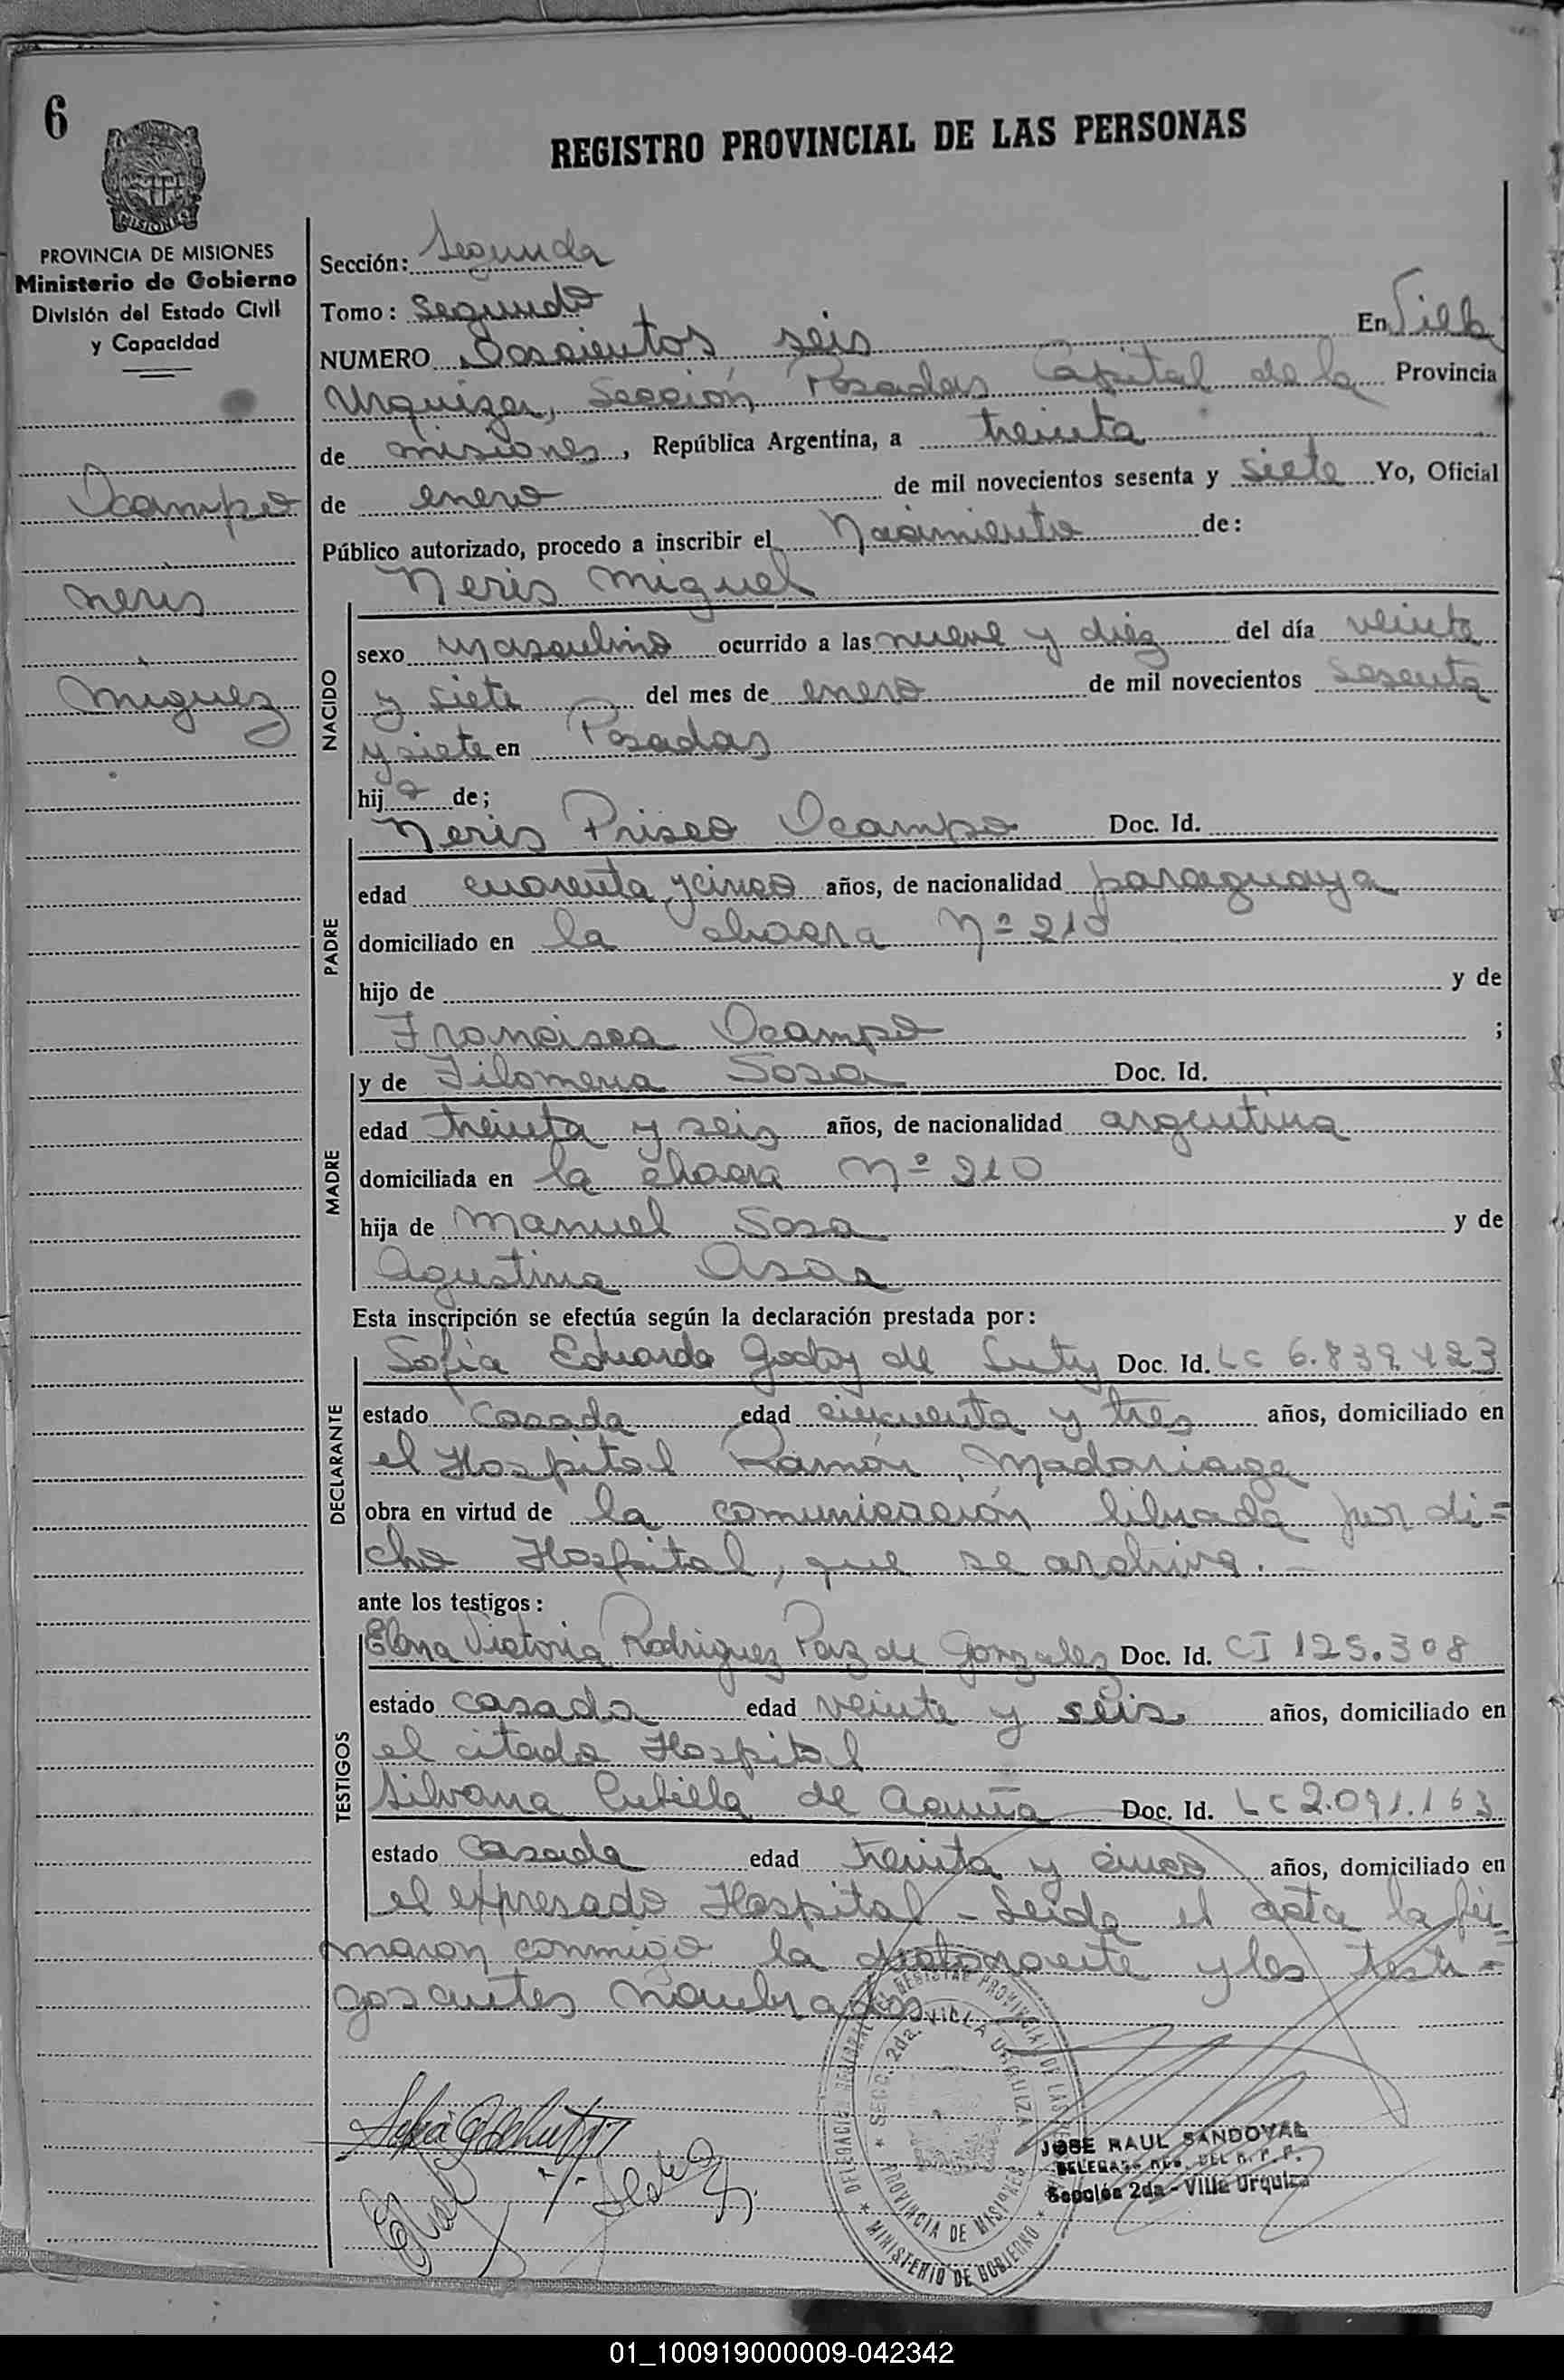 6
REGISTRO PROVINCIAL DE LAS PERSONAS
MISIONES
PROVINCIA DE MISIONES
Ministerio de Gobierno
División del Estado Civil
y Capacidad
Ocampo
neris
miguez
Sección: Segunda
Tomo: Segundo
NUMERO Doscientos seis En Villa
Urquiza, Sección, Posadas Capital de la Provincia
de misiones, República Argentina, a treinta
de enero de mil novecientos sesenta y siete Yo, Oficial
Público autorizado, procedo a inscribir el Nacimiento de:
Neris Miguel
NACIDO
sexo masculino ocurrido a las nueve y diez del día veinte
y siete del mes de enero de mil novecientos sesenta
y siete en Posadas
hijo de;
PADRE
Neris Prisco Ocampo Doc. Id.
edad cuarenta y cinco años, de nacionalidad paraguaya
domiciliado en la chacra Nº 210
hijo de y de
Francisca Ocampo ;
MADRE
y de Filomena Sosa Doc. Id.
edad treinta y seis años, de nacionalidad argentina
domiciliada en la chacra Nº 210
hija de Manuel Sosa y de
Agustina
Esta inscripción se efectúa según la declaración prestada por:
DECLARANTE
Sofía Eduarda Godoy de Doc. Id. LC 6.839.423
estado casada edad cincuenta y tres años, domiciliado en
el Hospital Ramón Madariaga
obra en virtud de la comunicación librada por di=
cho Hospital, que se archiva.-
ante los testigos:
TESTIGOS
Elena Victoria Rodriguez Paz de Gonzalez Doc. Id. CI 125.308
estado casada edad veinte y seis años, domiciliado en
el citado Hospital
Silvana Cubilla de Acuña Doc. Id. LC 2.091.163
estado casada edad treinta y cinco años, domiciliado en
el expresado Hospital - Leida el acta la fir=
maron conmigo la declarante y los testi=
gos antes nombrados
DELEGACION REGISTRO PROVINCIAL DE LAS
SECC. 2da. VILLA URQUIZA
PROVINCIA DE MISIONES
MINISTERIO DE GOBIERNO
JOSE RAUL SANDOVAL
DELEGADO REG. DEL R. P. P.
Sección 2da - Villa Urquiza
01_100919000009-042342